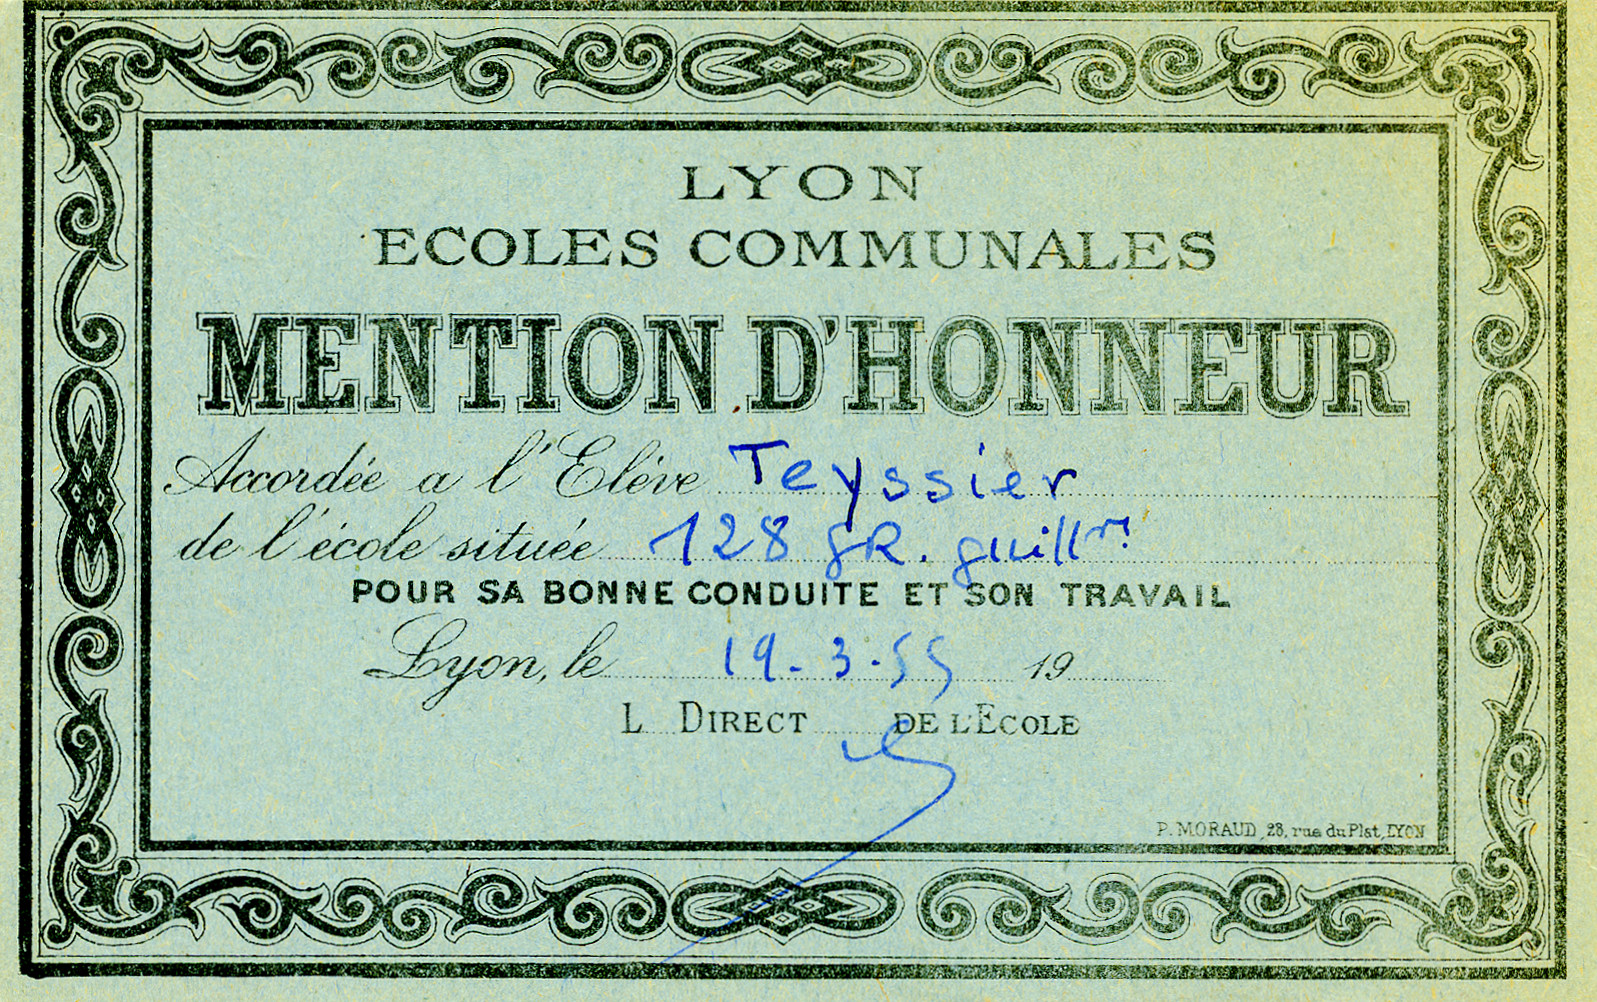 LYON
ECOLES COMMUNALES
MENTION D'HONNEUR
Accordée a l'Elève Teyssier
de l'école située 128 gR. guillre
POUR SA BONNE CONDUITE ET SON TRAVAIL
Lyon, le 19-3-55 19
L DIRECT DE L'ECOLE
P. MORAUD, 28, rue du Plat, LYON